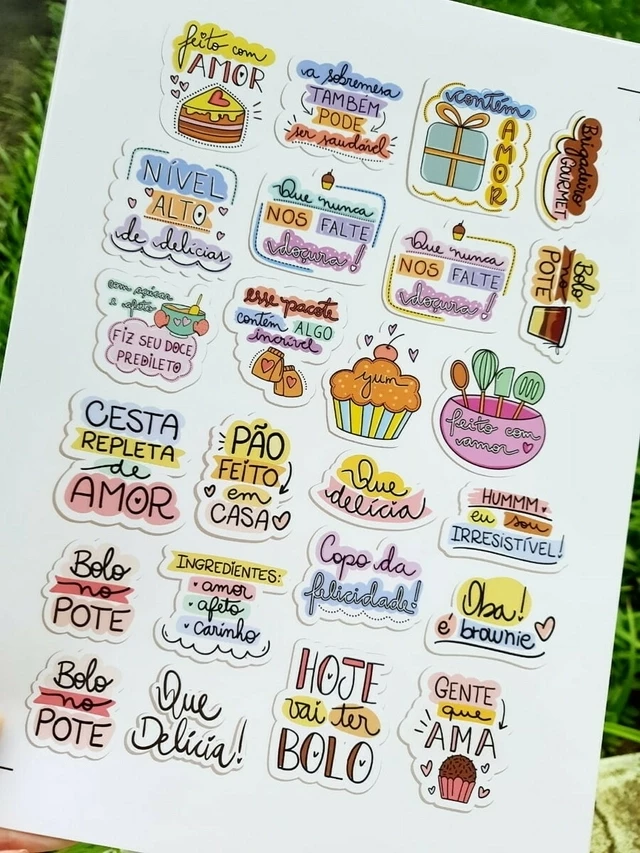 feito com
AMOR
a sobremesa
TAMBÉM
PODE
ser saudável
contém
AMOR
Brigadeiro
GOURMET
NÍVEL
ALTO
de delícias
Que nunca
NOS FALTE
doçura!
Que nunca
NOS FALTE
doçura!
Bolo
no
POTE
com açúcar
e afeto
FIZ SEU DOCE
PREDILETO
esse pacote
contém ALGO
incrível
yum
feito com
amor
CESTA
REPLETA
de
AMOR
PÃO
FEITO
em
CASA
Que
delícia
HUMMM
eu sou
IRRESISTÍVEL!
Bolo
no
POTE
INGREDIENTES:
amor
afeto
carinho
Copo da
felicidade!
Oba!
é brownie
Bolo
no
POTE
Que
Delícia!
HOJE
vai ter
BOLO
GENTE
que
AMA